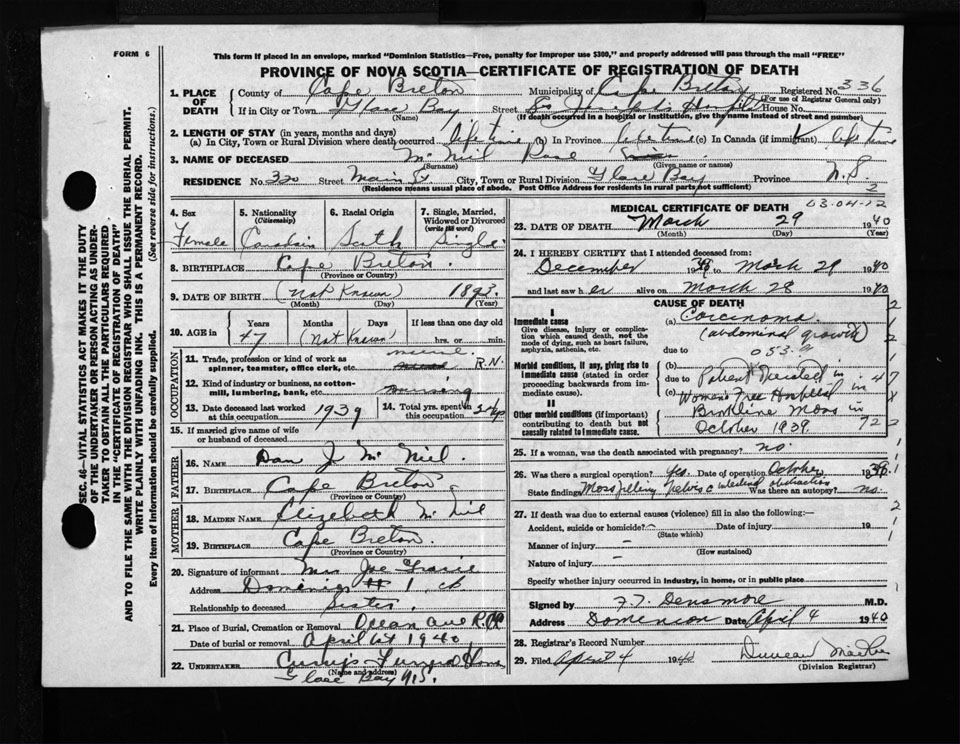 FORM 6
This form if placed in an envelope, marked "Dominion Statistics—Free, penalty for improper use $300," and properly addressed will pass through the mail "FREE"
PROVINCE OF NOVA SCOTIA—CERTIFICATE OF REGISTRATION OF DEATH
SEC. 46—VITAL STATISTICS ACT MAKES IT THE DUTY
OF THE UNDERTAKER OR PERSON ACTING AS UNDER-
TAKER TO OBTAIN ALL THE PARTICULARS REQUIRED
IN THE "CERTIFICATE OF REGISTRATION OF DEATH"
AND TO FILE THE SAME WITH THE DIVISION REGISTRAR WHO SHALL ISSUE THE BURIAL PERMIT.
WRITE PLAINLY WITH UNFADING INK. THIS IS A PERMANENT RECORD.
Every item of information should be carefully supplied. (See reverse side for instructions.)
1. PLACE OF DEATH County of Cape Breton Municipality of Cape Breton Registered No. 336
(For use of Registrar General only)
If in City or Town Glace Bay Street House No.
(Name) (If death occurred in a hospital or institution, give the name instead of street and number)
2. LENGTH OF STAY (in years, months and days)
(a) In City, Town or Rural Division where death occurred life time (b) In Province life time (c) In Canada (if immigrant) life time
3. NAME OF DECEASED Mc Neil Rose
(Surname) (Given name or names)
RESIDENCE No. 320 Street Main St City, Town or Rural Division Glace Bay Province N.S.
(Residence means usual place of abode. Post Office Address for residents in rural parts, not sufficient) 2
4. Sex Female
5. Nationality (Citizenship) Canadain
6. Racial Origin Scoth
7. Single, Married, Widowed or Divorced (write the word) Single
8. BIRTHPLACE Cape Breton
(Province or Country)
9. DATE OF BIRTH (Not Known) 1893
(Month) (Day) (Year)
10. AGE in Years Months Days If less than one day old
47 (Not Known) hrs. or min.
OCCUPATION
11. Trade, profession or kind of work as spinner, teamster, office clerk, etc. nurse R.N.
12. Kind of industry or business, as cotton-mill, lumbering, bank, etc. nursing
13. Date deceased last worked at this occupation 1939
14. Total yrs. spent in this occupation 24
15. If married give name of wife or husband of deceased
FATHER
16. Name Dan J Mc Neil
17. Birthplace Cape Breton
(Province or Country)
MOTHER
18. Maiden Name Elizabeth Mc Neil
19. Birthplace Cape Breton
(Province or Country)
20. Signature of informant Mrs Joe
Address Dominion # 1 CB
Relationship to deceased Sister
21. Place of Burial, Cremation or Removal
Date of burial or removal April 1940
22. UNDERTAKER Funeral Home
(Name and address)
Glace Bay N.S.
63-04-12
MEDICAL CERTIFICATE OF DEATH
23. DATE OF DEATH March 29 1940
(Month) (Day) (Year)
24. I HEREBY CERTIFY that I attended deceased from:
December 1939 to March 29 1940
and last saw her alive on March 28 1940
CAUSE OF DEATH
I
Immediate cause
Give disease, injury or complication which caused death, not the mode of dying, such as heart failure, asphyxia, asthenia, etc.
(a) Carcinoma
(abdominal growth)
due to 053-9
Morbid conditions, if any, giving rise to immediate cause (stated in order proceeding backwards from immediate cause).
(b)
due to Patient treated in
(c) Women's Free Hospital in
II
Other morbid conditions (if important) contributing to death but not causally related to immediate cause.
Brookline Mass in
October 1939.
25. If a woman, was the death associated with pregnancy? no.
26. Was there a surgical operation? yes. Date of operation October 1939
State findings Mass filling Pelvis c intestinal obstruction Was there an autopsy? no.
27. If death was due to external causes (violence) fill in also the following:—
Accident, suicide or homicide? – Date of injury 19
(State which)
Manner of injury –
(How sustained)
Nature of injury –
Specify whether injury occurred in industry, in home, or in public place
Signed by F.T. Densmore M.D.
Address Dominion Date April 4 1940
28. Registrar's Record Number
29. Filed April 4 1940 Duncan
(Division Registrar)